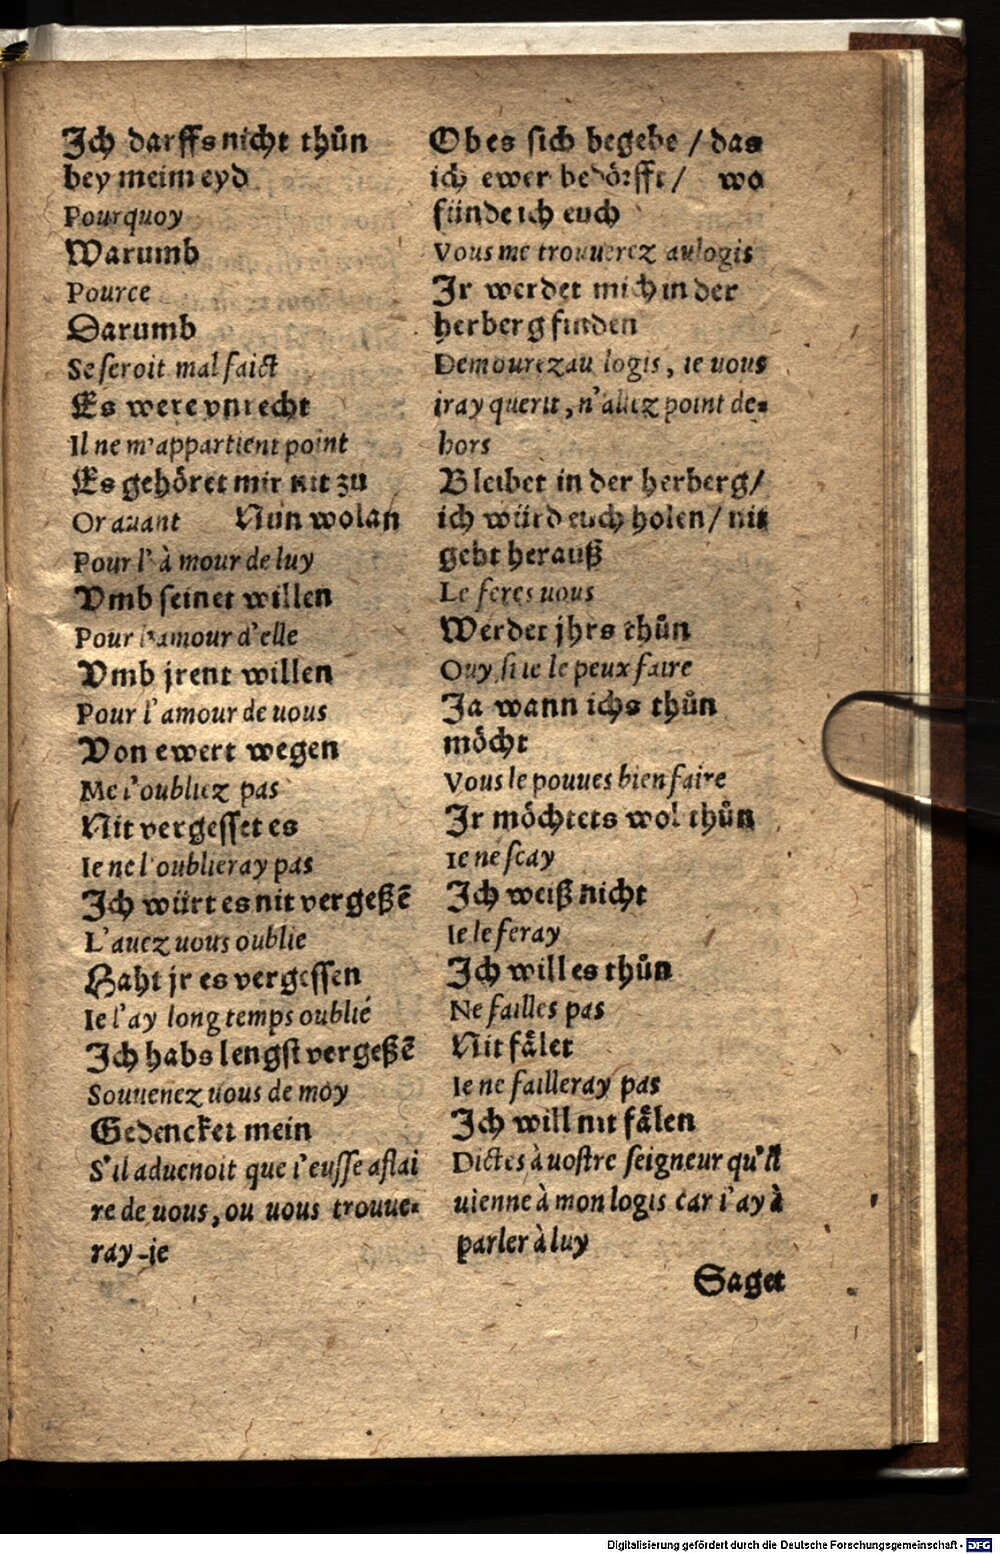 Ich darffs nicht thůn
bey meim eyd
Pourquoy
Warumb
Pource
Darumb
Se seroit mal faict
Es were vnrecht
Il ne m'appartient point
Es gehöret mir nit zu
Or auant Nun wolan
Pour l'à mour de luy
Vmb seinet willen
Pour l'amour d'elle
Vmb jrent willen
Pour l'amour de uous
Von ewert wegen
Me l'oubliez pas
Nit vergesset es
Ie ne l'oublieray pas
Ich würt es nit vergeßē
L'auez uous oublie
Haht jr es vergessen
Ie l'ay long temps oublié
Ich habs lengst vergeßē
Souuenez uous de moy
Gedencket mein
S'il aduenoit que i'eusse affai
re de uous, ou uous trouue-
ray-ie
Ob es sich begebe / das
ich ewer bedörfft / wo
fünde ich euch
Vous me trouuerez au logis
Ir werdet mich in der
herberg finden
Demourez au logis, ie uous
iray querir, n'allez point de-
hors
Bleibet in der herberg /
ich würd euch holen / nit
geht herauß
Le feres uous
Werdet jhrs thůn
Ouy si ie le peux faire
Ja wann ichs thůn
möcht
Vous le pouues bien faire
Ir möchtets wol thůn
Ie ne scay
Ich weiß nicht
Ie le feray
Ich will es thůn
Ne failles pas
Nit fälet
Ie ne failleray pas
Ich will nit fälen
Dictes à uostre seigneur qu'il
uienne à mon logis car i'ay à
parler à luy
Saget
Digitalisierung gefördert durch die Deutsche Forschungsgemeinschaft - DFG